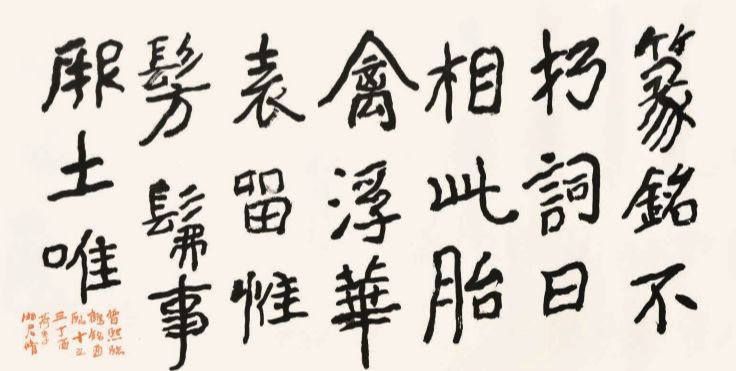 篆銘不
朽詞曰
相此胎
禽浮華
表留惟
髣髴事
厥土唯